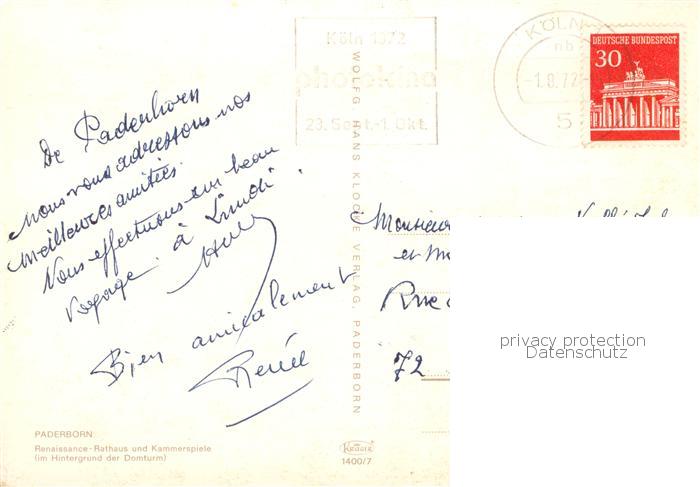 Köln 1972
photokina
23. Sept.-1. Okt.
KÖLN
nb
-1.8.72-
5
DEUTSCHE BUNDESPOST
30
De Padenhorn
Nous vous adressons nos
meilleures amitiés.
Nous effectuons un beau
voyage. à Lundi.
Bien amicalement
Renée
WOLFG. HANS KLOCKE VERLAG, PADERBORN
Monsieur
et M
Rue
72
privacy protection
Datenschutz
PADERBORN:
Renaissance-Rathaus und Kammerspiele
(im Hintergrund der Domturm)
Krüger
1400/7